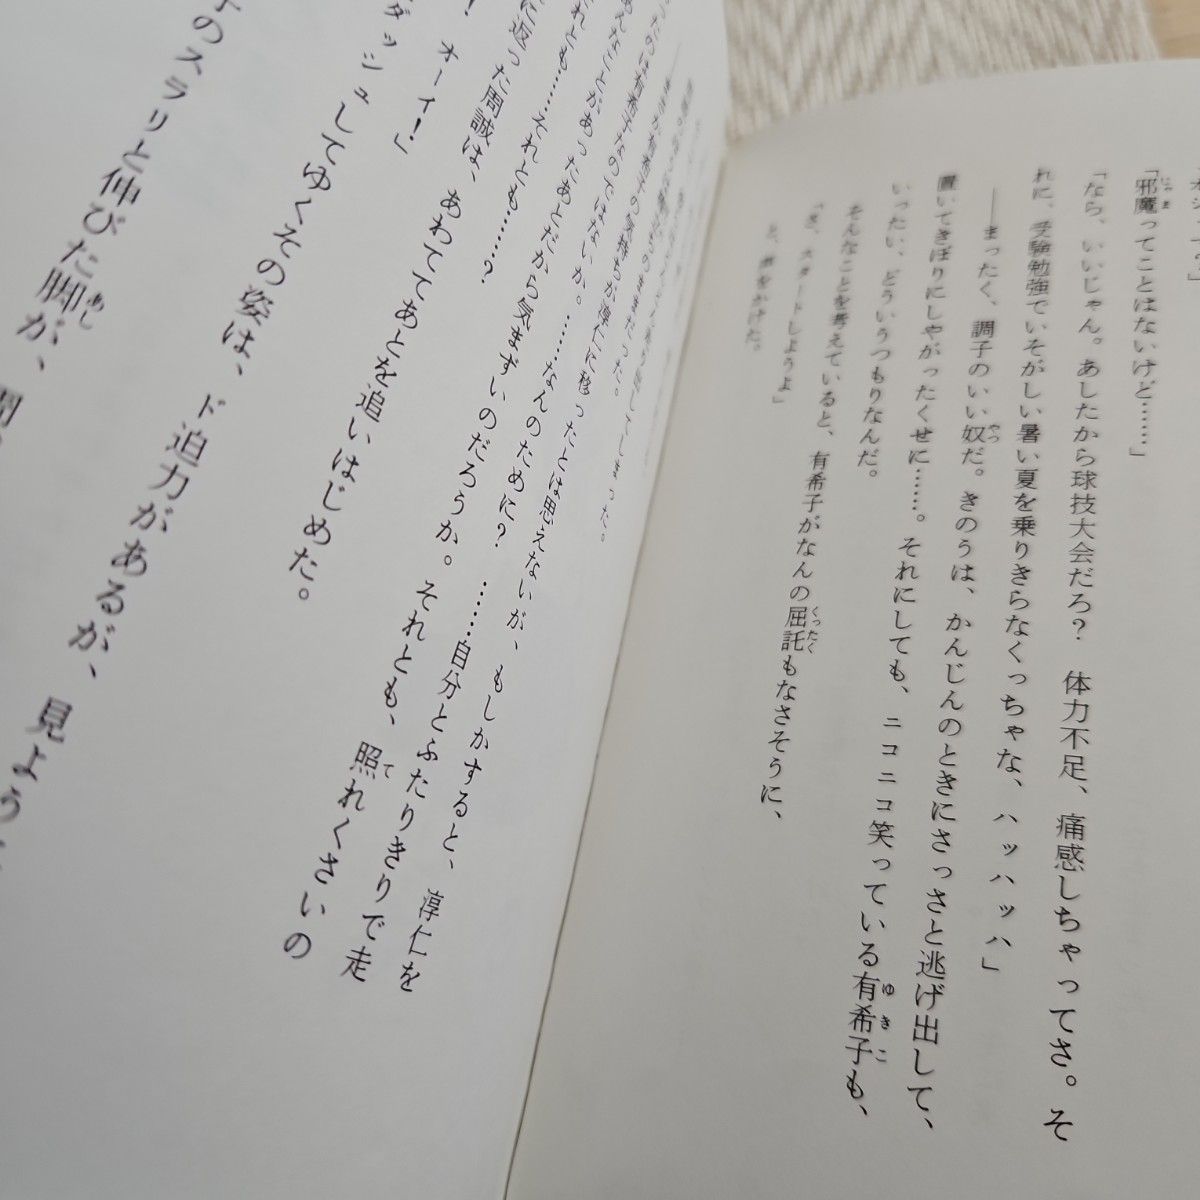 「邪魔ってことはないけど……」
「なら、いいじゃん。あしたから球技大会だろ？　体力不足、痛感しちゃってさ。そ
れに、受験勉強でいそがしい暑い夏を乗りきらなくっちゃな、ハッハッハ」
――まったく、調子のいい奴だ。きのうは、かんじんのときにさっさと逃げ出して、
置いてきぼりにしやがったくせに……。それにしても、ニコニコ笑っている有希子も、
いったい、どういうつもりなんだ。
そんなことを考えていると、有希子がなんの屈託もなさそうに、
「さ、スタートしようよ」
と、声をかけた。
有希子の気持ちが淳仁に移ったとは思えないが、もしかすると、淳仁を
なのではないか。……なんのために？　……自分とふたりきりで走
あんなことがあったあとだから気まずいのだろうか。それとも、照れくさいの
それとも……それとも……？
に返った周誠は、あわててあとを追いはじめた。
！　オーイ！」
ダッシュしてゆくその姿は、ド迫力があるが、見よう
のスラリと伸びた脚が、